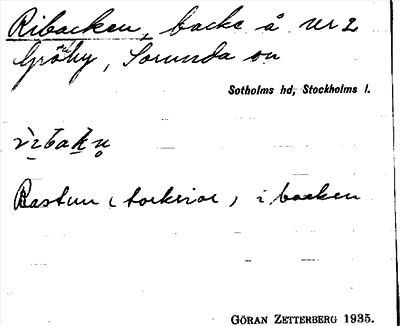 Ribacken, backe å nr 2
Gröby, Sorunda sn
Sotholms hd, Stockholms l.
Bastun (torkria), i backen
GÖRAN ZETTERBERG 1935.